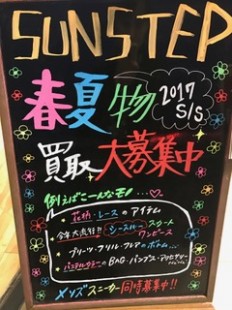 SUNSTEP
春夏物 2017 S/S
買取大募集中
例えばこ〜んなモノ…
・花柄・レースのアイテム
・今年大流行!! シースルースカート ワンピース
・プリーツ・フリル・フレアのボトム…
・パステルカラーのBAG・パンプス・アクセサリー
メンズスニーカー同時募集中!!